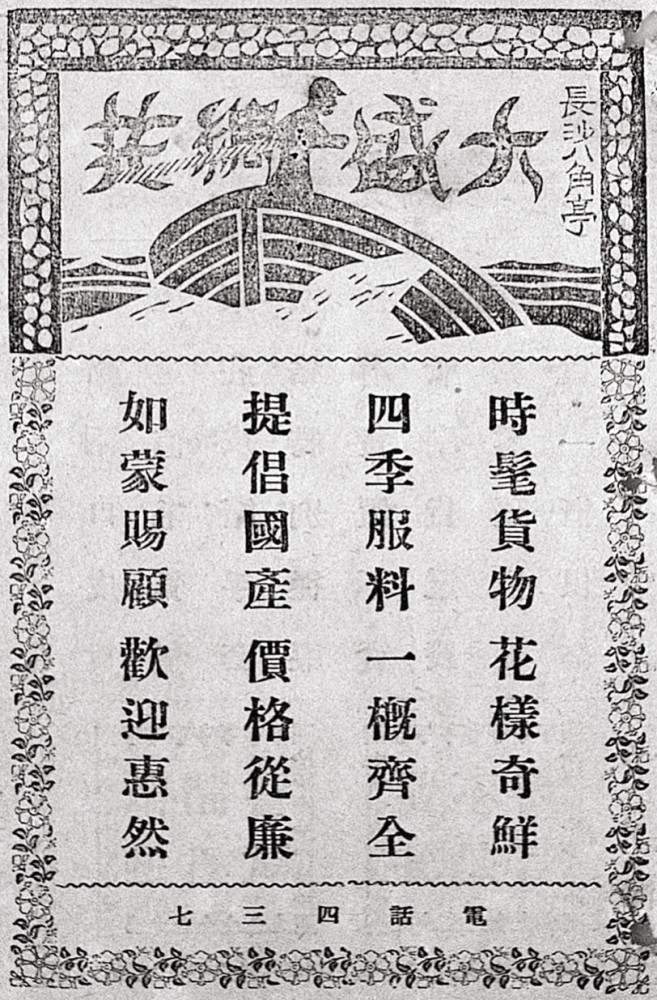 長沙八角亭
大盛綢莊
時髦貨物花樣奇鮮
四季服料一概齊全
提倡國產價格從廉
如蒙賜顧歡迎惠然
電話四三七